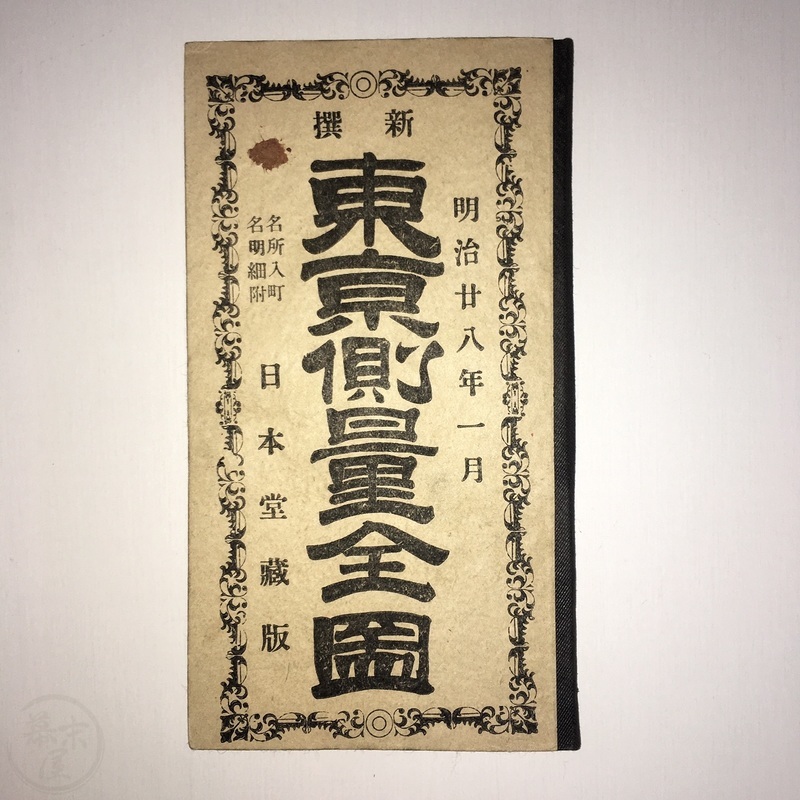 新撰
明治廿八年一月
東亰側量全圖
名所入町
名明細附
日本堂藏版
幕末屋